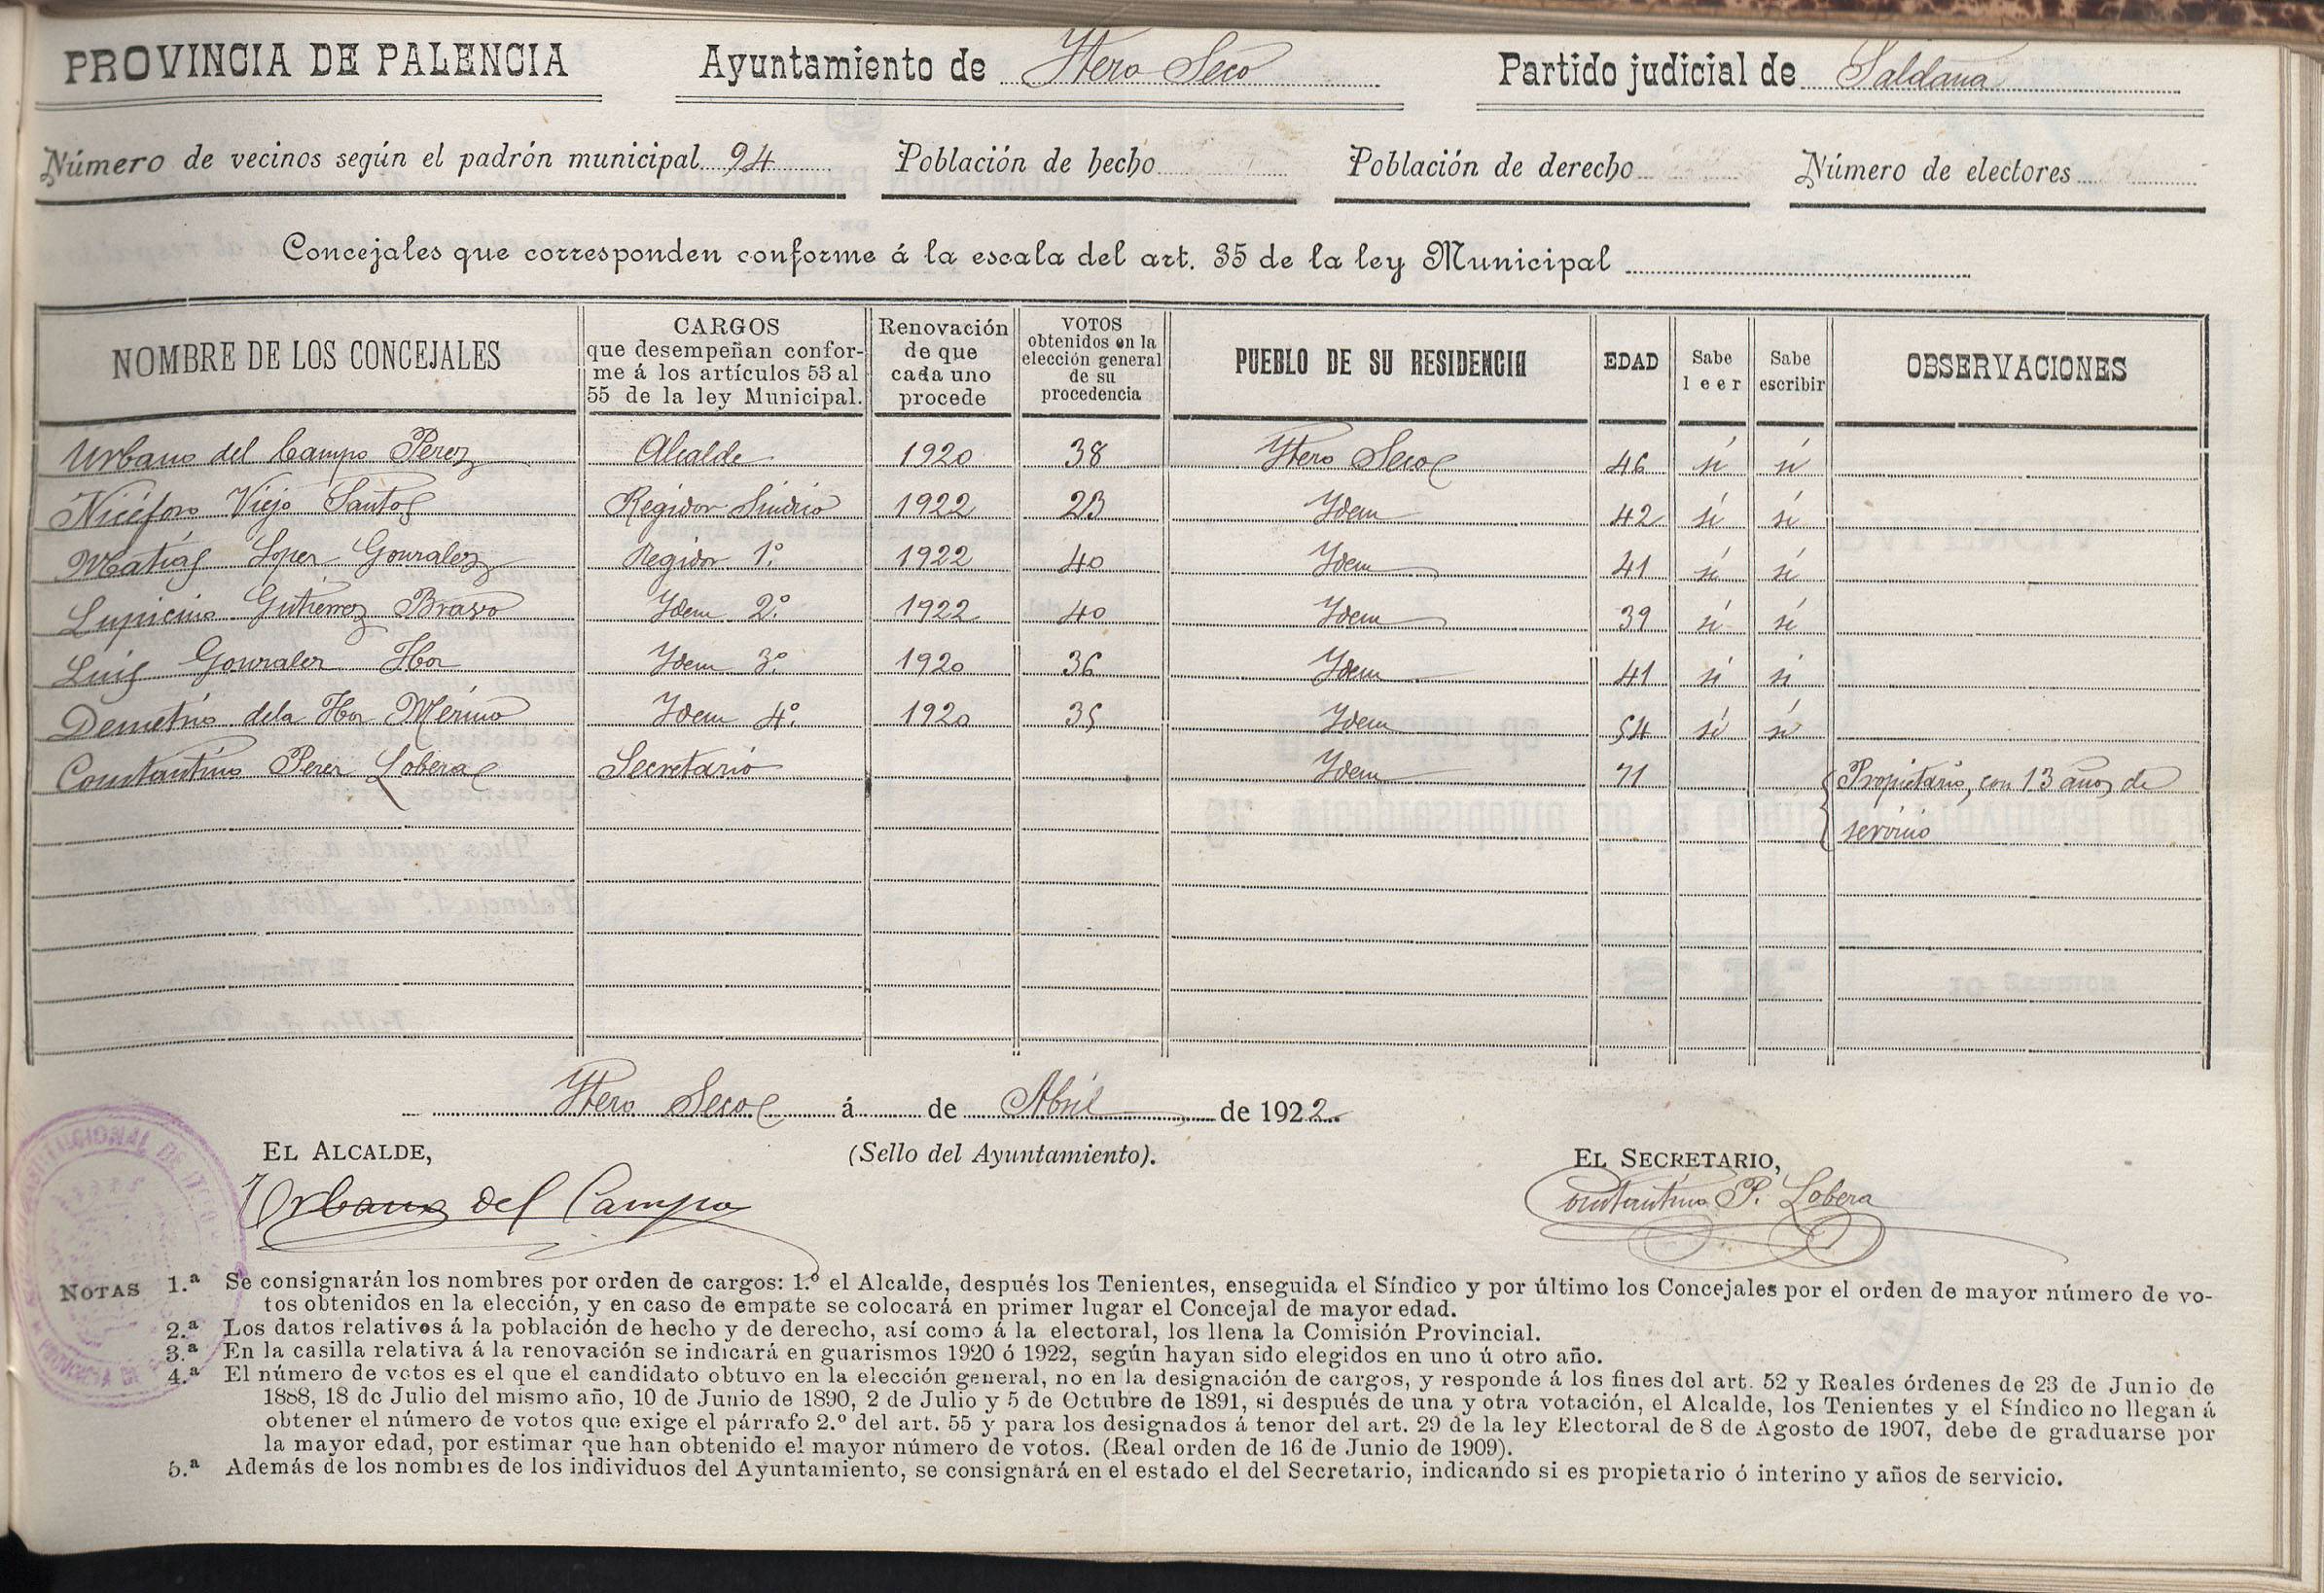 PROVINCIA DE PALENCIA Ayuntamiento de Ytero Seco Partido judicial de Saldaña
Número de vecinos según el padrón municipal 94 Población de hecho Población de derecho Número de electores
Concejales que corresponden conforme á la escala del art. 35 de la ley Municipal
NOMBRE DE LOS CONCEJALES
CARGOS
que desempeñan confor-
me á los artículos 53 al
55 de la ley Municipal.
Renovación
de que
cada uno
procede
VOTOS
obtenidos en la
elección general
de su
procedencia
PUEBLO DE SU RESIDENCIA
EDAD
Sabe
leer
Sabe
escribir
OBSERVACIONES
Urbano del Campo Perez Alcalde 1920 38 Ytero Seco 46 si si
Nicéforo Viejo Santos Regidor Sindico 1922 23 Ydem 42 si si
Matias Loper Gonzalez Regidor 1.º 1922 40 Ydem 41 si si
Lupicino Gutierrez Bravo Ydem 2.º 1922 40 Ydem 39 si si
Luis Gonzalez Hoz Ydem 3.º 1920 36 Ydem 41 si si
Demetrio dela Hoz Merino Ydem 4.º 1920 35 Ydem 54 si si
Constantino Perez Lobera Secretario Ydem 71 Propietario, con 13 años de
servicio
Ytero Seco á de Abril de 1922
EL ALCALDE, (Sello del Ayuntamiento). EL SECRETARIO,
Urbano del Campo Constantino P. Lobera
NOTAS 1.ª Se consignarán los nombres por orden de cargos: 1.º el Alcalde, después los Tenientes, enseguida el Síndico y por último los Concejales por el orden de mayor número de vo-
tos obtenidos en la elección, y en caso de empate se colocará en primer lugar el Concejal de mayor edad.
2.ª Los datos relativos á la población de hecho y de derecho, así como á la electoral, los llena la Comisión Provincial.
3.ª En la casilla relativa á la renovación se indicará en guarismos 1920 ó 1922, según hayan sido elegidos en uno ú otro año.
4.ª El número de votos es el que el candidato obtuvo en la elección general, no en la designación de cargos, y responde á los fines del art. 52 y Reales órdenes de 23 de Junio de
1888, 18 de Julio del mismo año, 10 de Junio de 1890, 2 de Julio y 5 de Octubre de 1891, si después de una y otra votación, el Alcalde, los Tenientes y el Síndico no llegan á
obtener el número de votos que exige el párrafo 2.º del art. 55 y para los designados á tenor del art. 29 de la ley Electoral de 8 de Agosto de 1907, debe de graduarse por
la mayor edad, por estimar que han obtenido el mayor número de votos. (Real orden de 16 de Junio de 1909).
5.ª Además de los nombres de los individuos del Ayuntamiento, se consignará en el estado el del Secretario, indicando si es propietario ó interino y años de servicio.